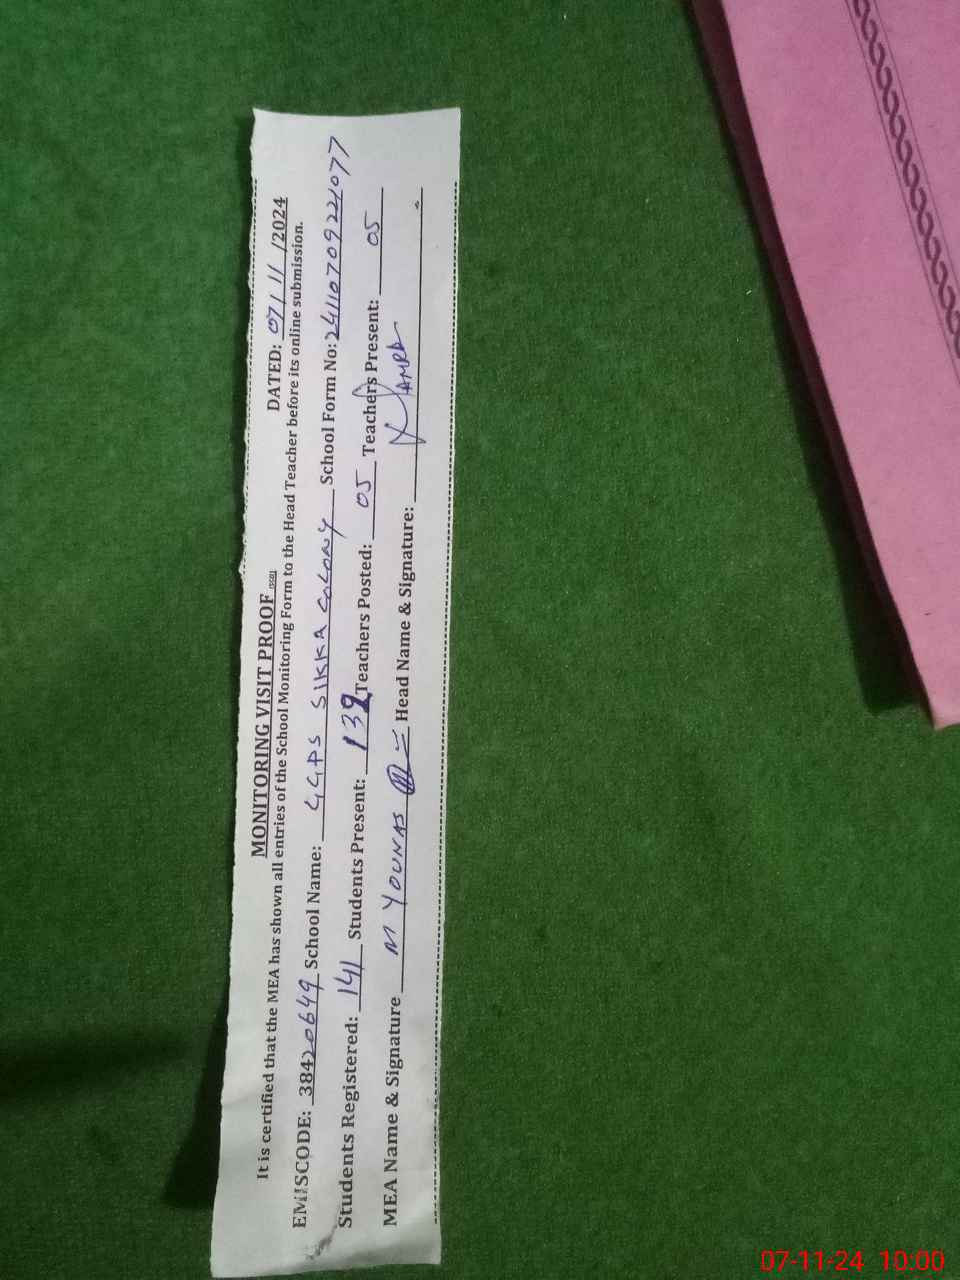 MONITORING VISIT PROOF
DATED: 07/11/2024
It is certified that the MEA has shown all entries of the School Monitoring Form to the Head Teacher before its online submission.
EMISCODE: 38420649 School Name: GGPS SIKKA COLONY School Form No: 24110709221077
Students Registered: 141 Students Present: 139 Teachers Posted: 05 Teachers Present: 05
MEA Name & Signature M YOUNAS Head Name & Signature:
07-11-24 10:00